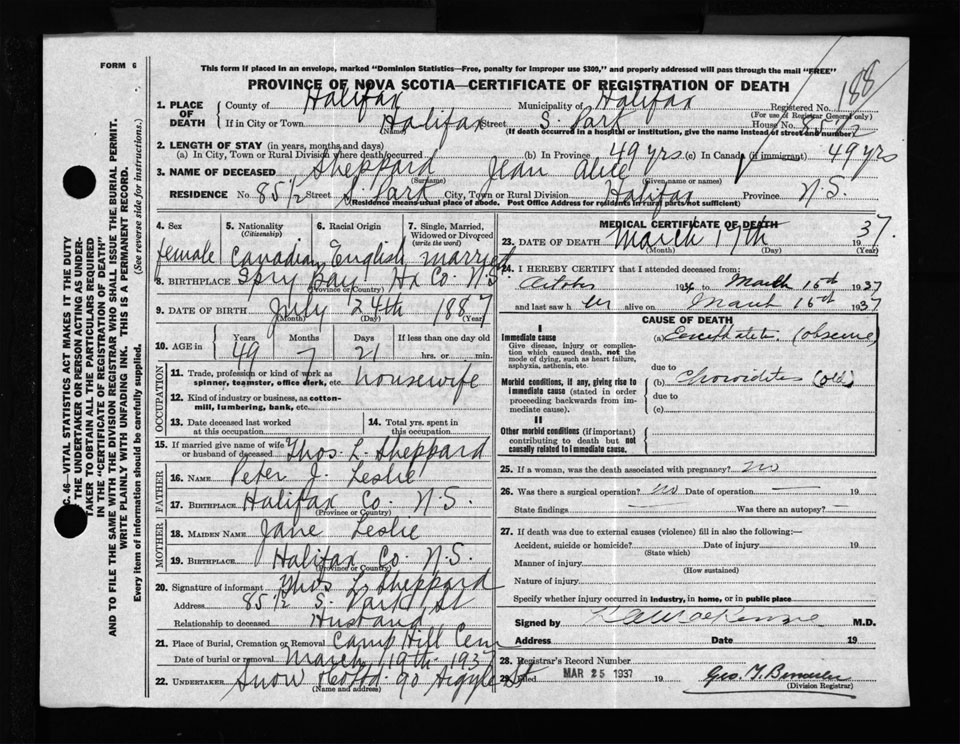 FORM 6
This form if placed in an envelope, marked "Dominion Statistics—Free, penalty for improper use $300," and properly addressed will pass through the mail "FREE"
PROVINCE OF NOVA SCOTIA—CERTIFICATE OF REGISTRATION OF DEATH
188
1. PLACE OF DEATH
County of Halifax Municipality of Halifax Registered No.
(For use of Registrar General only)
If in City or Town Halifax Street S. Park House No. 85½
(Name) (If death occurred in a hospital or institution, give the name instead of street and number)
2. LENGTH OF STAY (in years, months and days)
(a) In City, Town or Rural Division where death occurred (b) In Province 49 yrs (c) In Canada (if immigrant) 49 yrs
3. NAME OF DECEASED Sheppard Jean Alice
(Surname) (Given name or names)
RESIDENCE No. 85½ Street S. Park City, Town or Rural Division Halifax Province N.S.
(Residence means usual place of abode. Post Office Address for residents in rural parts not sufficient)
4. Sex 5. Nationality (Citizenship) 6. Racial Origin 7. Single, Married, Widowed or Divorced (write the word)
female Canadian English married
8. BIRTHPLACE Spry Bay Hx Co. N.S.
(Province or Country)
9. DATE OF BIRTH July 24th 1887
(Month) (Day) (Year)
10. AGE in Years Months Days If less than one day old
49 7 21 hrs. or min.
OCCUPATION
11. Trade, profession or kind of work as spinner, teamster, office clerk, etc. housewife
12. Kind of industry or business, as cotton-mill, lumbering, bank, etc.
13. Date deceased last worked at this occupation
14. Total yrs. spent in this occupation
15. If married give name of wife or husband of deceased Thos. L. Sheppard
FATHER
16. NAME Peter J. Leslie
17. BIRTHPLACE Halifax Co. N.S.
(Province or Country)
MOTHER
18. MAIDEN NAME Jane Leslie
19. BIRTHPLACE Halifax Co. N.S.
(Province or Country)
20. Signature of informant Thos L. Sheppard
Address 85½ S. Park St
Relationship to deceased Husband
21. Place of Burial, Cremation or Removal Camp Hill Cem
Date of burial or removal March 19th 1937
22. UNDERTAKER Snow & Co Ltd. 90 Argyle St
(Name and address)
MEDICAL CERTIFICATE OF DEATH
23. DATE OF DEATH March 17th 1937
(Month) (Day) (Year)
24. I HEREBY CERTIFY that I attended deceased from:
March 16th 1937
and last saw her alive on March 16th 1937
CAUSE OF DEATH
I
Immediate cause
Give disease, injury or complication which caused death, not the mode of dying, such as heart failure, asphyxia, asthenia, etc.
(a) Encephalitis (obscure)
due to
Morbid conditions, if any, giving rise to immediate cause (stated in order proceeding backwards from immediate cause).
(b) Choroiditis (old)
due to
(c)
II
Other morbid conditions (if important) contributing to death but not causally related to immediate cause.
25. If a woman, was the death associated with pregnancy? no
26. Was there a surgical operation? no Date of operation — 19
State findings — Was there an autopsy? —
27. If death was due to external causes (violence) fill in also the following:—
Accident, suicide or homicide? Date of injury 19
(State which)
Manner of injury
(How sustained)
Nature of injury
Specify whether injury occurred in industry, in home, or in public place
Signed by M.D.
Address Date 19
28. Registrar's Record Number
29. Filed MAR 25 1937 19
(Division Registrar)
C. 46—VITAL STATISTICS ACT MAKES IT THE DUTY
THE UNDERTAKER OR PERSON ACTING AS UNDERTAKER TO OBTAIN ALL THE PARTICULARS REQUIRED
IN THE "CERTIFICATE OF REGISTRATION OF DEATH"
AND TO FILE THE SAME WITH THE DIVISION REGISTRAR WHO SHALL ISSUE THE BURIAL PERMIT.
WRITE PLAINLY WITH UNFADING INK. THIS IS A PERMANENT RECORD.
Every item of information should be carefully supplied. (See reverse side for instructions.)